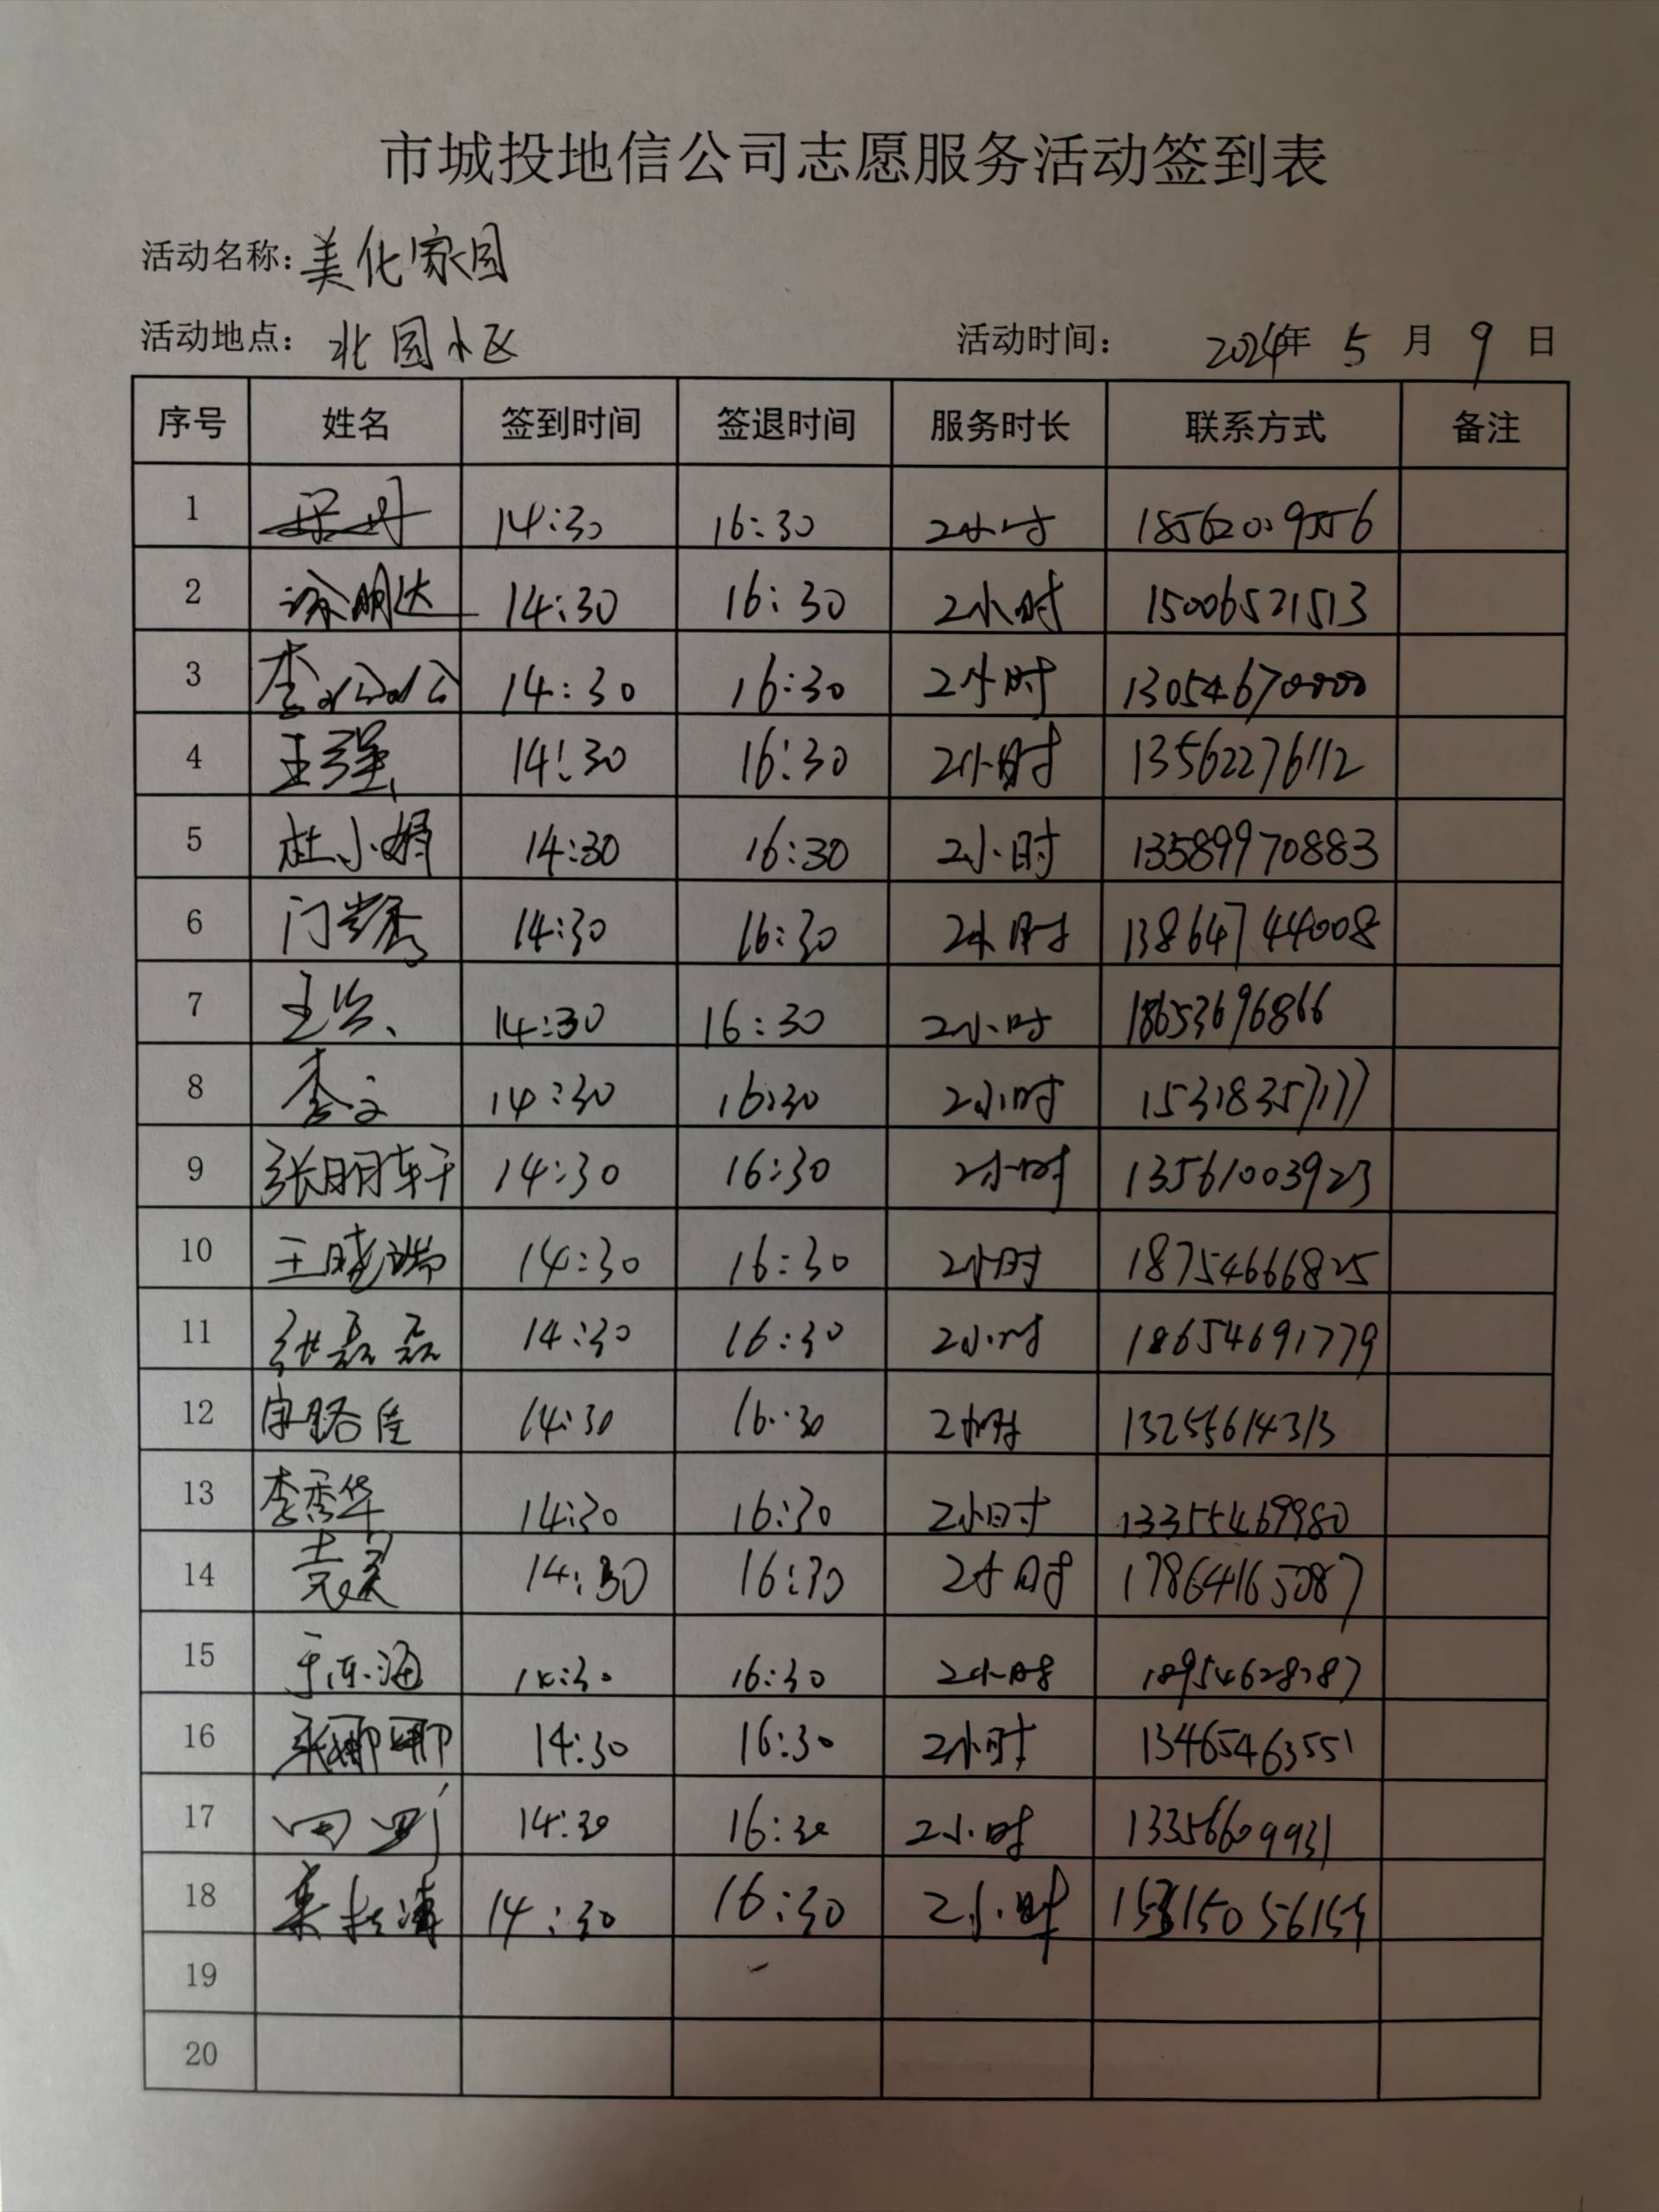 市城投地信公司志愿服务活动签到表
活动名称：美化家园
活动地点：北园小区 活动时间：2024年 5 月 9 日
序号 姓名 签到时间 签退时间 服务时长 联系方式 备注
1 14:30 16:30 2小时
2 14:30 16:30 2小时 15006521513
3 14:30 16:30 2小时
4 王强 14:30 16:30 2小时 13562276112
5 杜小娟 14:30 16:30 2小时 13589970883
6 14:30 16:30 2小时 13864744008
7 14:30 16:30 2小时 18653696866
8 李文 14:30 16:30 2小时 15318357177
9 张明轩 14:30 16:30 2小时 13561003923
10 王晓瑞 14:30 16:30 2小时 18754666825
11 张磊磊 14:30 16:30 2小时 18654691779
12 14:30 16:30 2小时 13255614313
13 李秀华 14:30 16:30 2小时 13355469980
14 14:30 16:30 2小时 17864165087
15 于海 14:30 16:30 2小时
16 张娜娜 14:30 16:30 2小时 13465463551
17 14:30 16:30 2小时 13356609931
18 14:30 16:30 2小时
19
20